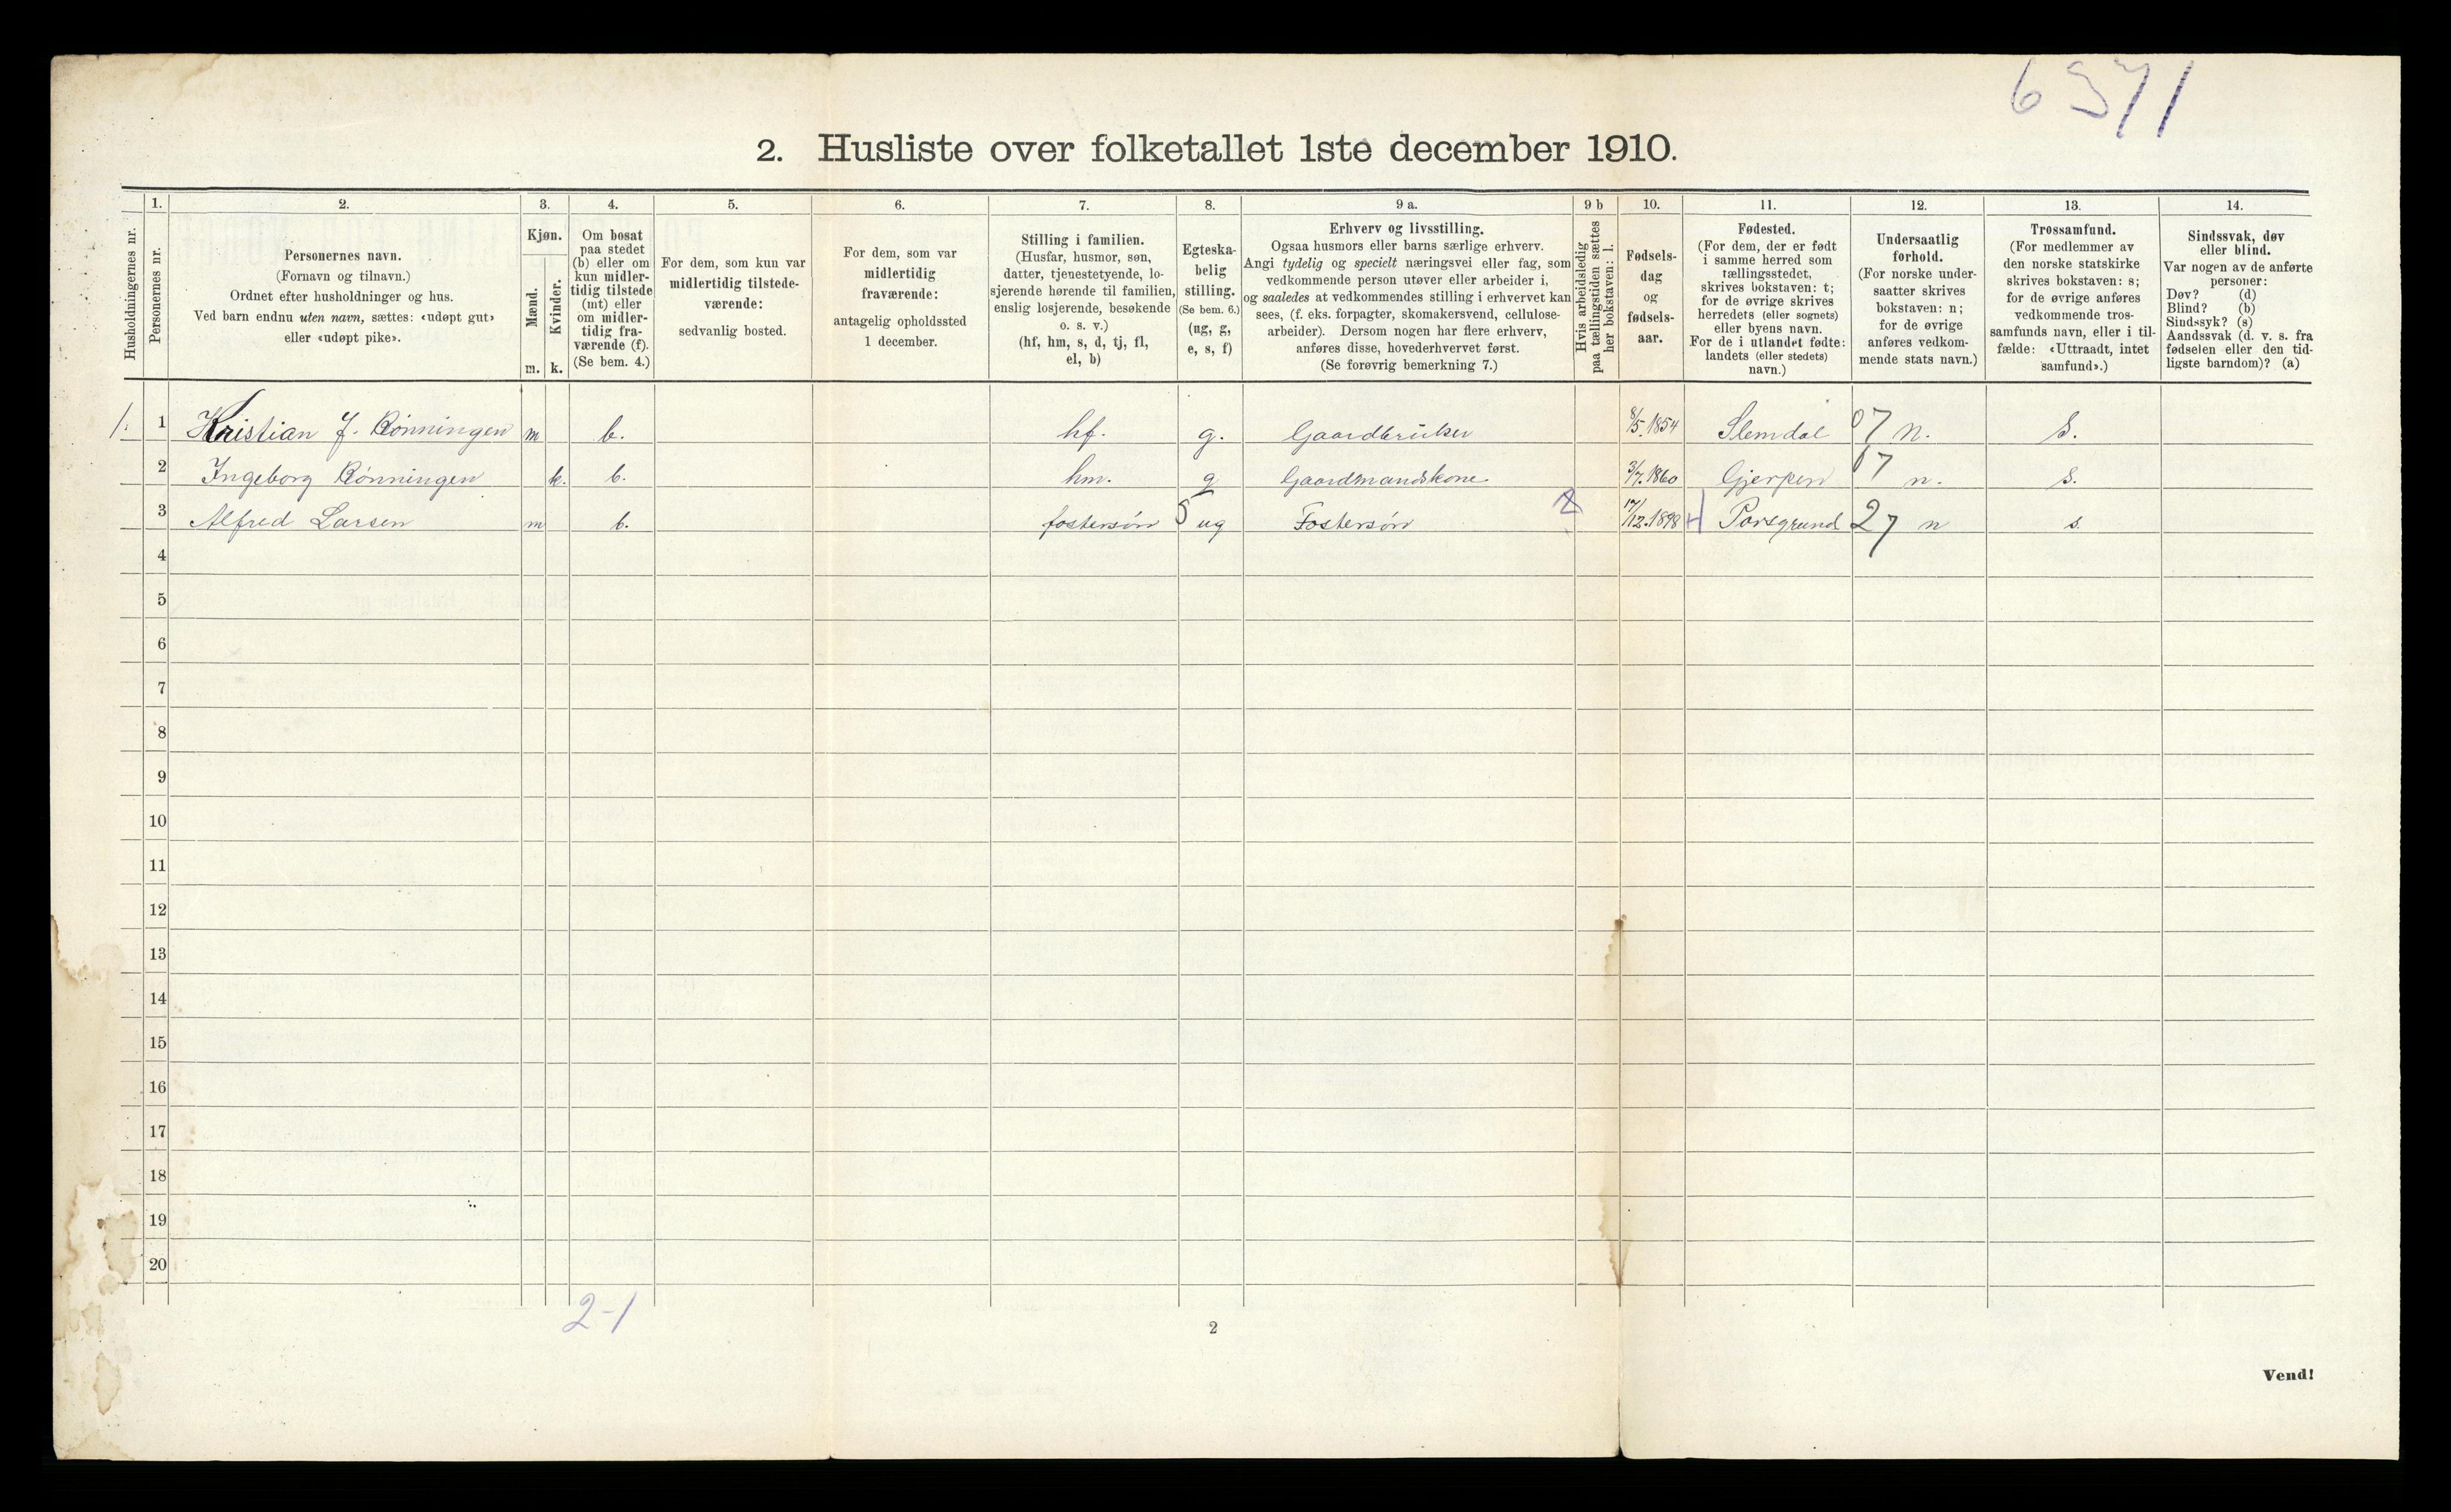 6571
2. Husliste over folketallet 1ste december 1910.
Husholdningernes nr.
1.
Personernes nr.
2.
Personernes navn.
(Fornavn og tilnavn.)
Ordnet efter husholdninger og hus.
Ved barn endnu uten navn, sættes: «udøpt gut»
eller «udøpt pike».
3.
Kjøn.
Mænd.
Kvinder.
m. k.
4.
Om bosat
paa stedet
(b) eller om
kun midler-
tidig tilstede
(mt) eller
om midler-
tidig fra-
værende (f).
(Se bem. 4.)
5.
For dem, som kun var
midlertidig tilstede-
værende:
sedvanlig bosted.
6.
For dem, som var
midlertidig
fraværende:
antagelig opholdssted
1 december.
7.
Stilling i familien.
(Husfar, husmor, søn,
datter, tjenestetyende, lo-
sjerende hørende til familien,
enslig losjerende, besøkende
o. s. v.)
(hf, hm, s, d, tj, fl,
el, b)
8.
Egteska-
belig
stilling.
(Se bem. 6.)
(ug, g,
e, s, f)
9 a.
Erhverv og livsstilling.
Ogsaa husmors eller barns særlige erhverv.
Angi tydelig og specielt næringsvei eller fag, som
vedkommende person utøver eller arbeider i,
og saaledes at vedkommendes stilling i erhvervet kan
sees, (f. eks. forpagter, skomakersvend, cellulose-
arbeider). Dersom nogen har flere erhverv,
anføres disse, hovederhvervet først.
(Se forøvrig bemerkning 7.)
9 b
Hvis arbeidsledig
paa tællingstiden sættes
her bokstaven: l.
10.
Fødsels-
dag
og
fødsels-
aar.
11.
Fødested.
(For dem, der er født
i samme herred som
tællingsstedet,
skrives bokstaven: t;
for de øvrige skrives
herredets (eller sognets)
eller byens navn.
For de i utlandet fødte:
landets (eller stedets)
navn.)
12.
Undersaatlig
forhold.
(For norske under-
saatter skrives
bokstaven: n;
for de øvrige
anføres vedkom-
mende stats navn.)
13.
Trossamfund.
(For medlemmer av
den norske statskirke
skrives bokstaven: s;
for de øvrige anføres
vedkommende tros-
samfunds navn, eller i til-
fælde: «Uttraadt, intet
samfund».)
14.
Sindssvak, døv
eller blind.
Var nogen av de anførte
personer:
Døv? (d)
Blind? (b)
Sindssyk? (s)
Aandssvak (d. v. s. fra
fødselen eller den tid-
ligste barndom)? (a)
1. 1 Kristian J. Rønningen m b. hf. g. Gaardbruker 8/5.1854 Slemdal 07 n. S.
2 Ingeborg Rønningen k. b. hm. g Gaardmandskone 3/7.1860 Gjerpen 07 n. s.
3 Alfred Larsen m b. fostersøn S ug Fostersøn 17/12.1898 Porsgrund 27 n s.
4
5
6
7
8
9
10
11
12
13
14
15
16
17
18
19
20
2-1
2
Vend!